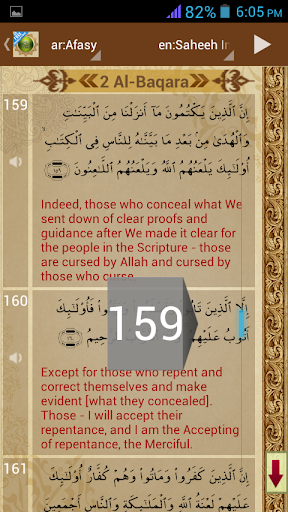 82% 6:05 PM
ar:Afasy en:Saheeh In
2 Al-Baqara
159
إِنَّ ٱلَّذِينَ يَكْتُمُونَ مَآ أَنزَلْنَا مِنَ ٱلْبَيِّنَـٰتِ
وَٱلْهُدَىٰ مِنۢ بَعْدِ مَا بَيَّنَّـٰهُ لِلنَّاسِ فِى ٱلْكِتَـٰبِ ۙ
أُو۟لَـٰٓئِكَ يَلْعَنُهُمُ ٱللَّهُ وَيَلْعَنُهُمُ ٱللَّـٰعِنُونَ ١٥٩
Indeed, those who conceal what We
sent down of clear proofs and
guidance after We made it clear for
the people in the Scripture - those
are cursed by Allah and cursed by
those who curse,
160
إِلَّا ٱلَّذِينَ فَأُو۟لَـٰٓئِكَ
أَتُوبُ عَلَيْهِمْ ١٦٠
159
Except for those who repent and
correct themselves and make
evident [what they concealed].
Those - I will accept their
repentance, and I am the Accepting
of repentance, the Merciful.
161
إِنَّ ٱلَّذِينَ كَفَرُوا۟ وَمَاتُوا۟ وَهُمْ كُفَّارٌ أُو۟لَـٰٓئِكَ
عَلَيْهِمْ لَعْنَةُ ٱللَّهِ وَٱلْمَلَـٰٓئِكَةِ وَٱلنَّاسِ أَجْمَعِينَ